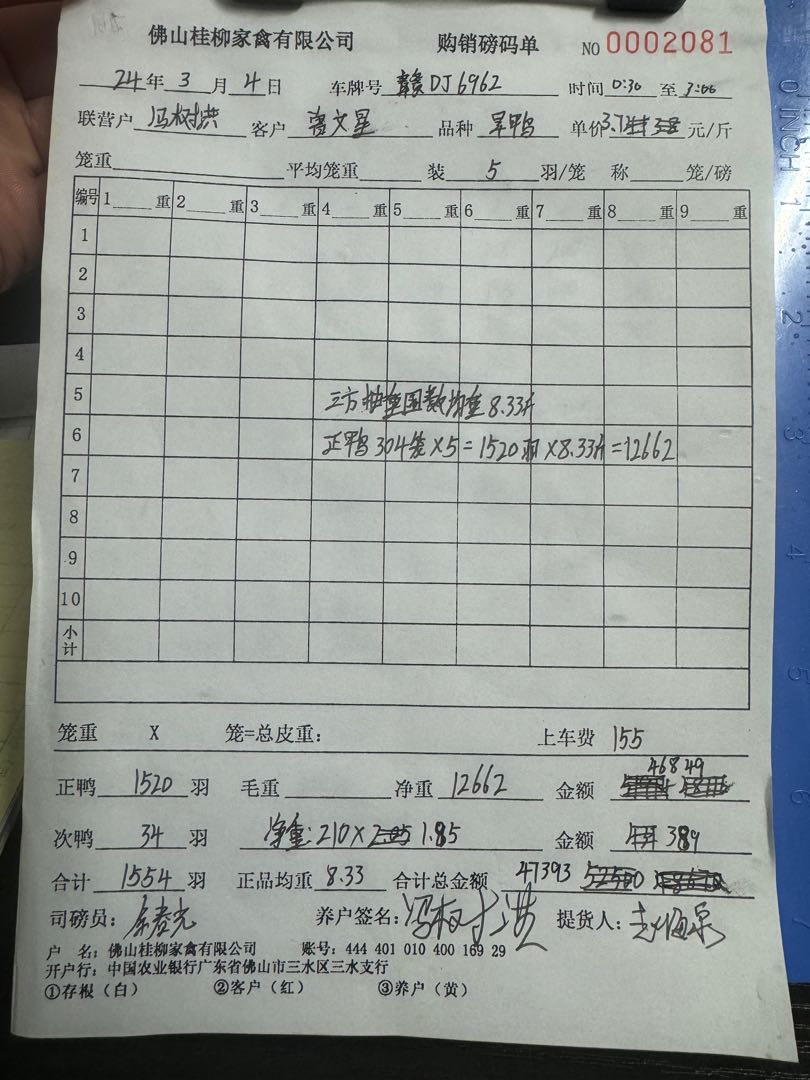 佛山桂柳家禽有限公司 购销磅码单 NO 0002081
24年3月4日 车牌号 赣DJ6962 时间 0:30 至 3:00
联营户 冯树洪 客户 文星 品种 旱鸭 单价 3.7 元/斤
笼重 平均笼重 装 5 羽/笼 称 笼/磅
编号 1 重 2 重 3 重 4 重 5 重 6 重 7 重 8 重 9 重
1
2
3
4
5 三方抽重国数均重8.33斤
6 正鸭304笼×5=1520羽×8.33斤=12662
7
8
9
10
小计
笼重 X 笼=总皮重: 上车费 155
正鸭 1520 羽 毛重 净重 12662 金额 46849
次鸭 34 羽 净重:210×1.85 金额 389
合计 1554 羽 正品均重 8.33 合计总金额 47393
司磅员: 养户签名: 冯树洪 提货人:
户 名: 佛山桂柳家禽有限公司 账号: 444 401 010 400 169 29
开户行: 中国农业银行广东省佛山市三水区三水支行
①存根(白) ②客户(红) ③养户(黄)
0 INCH 1
2
3
4
5
6